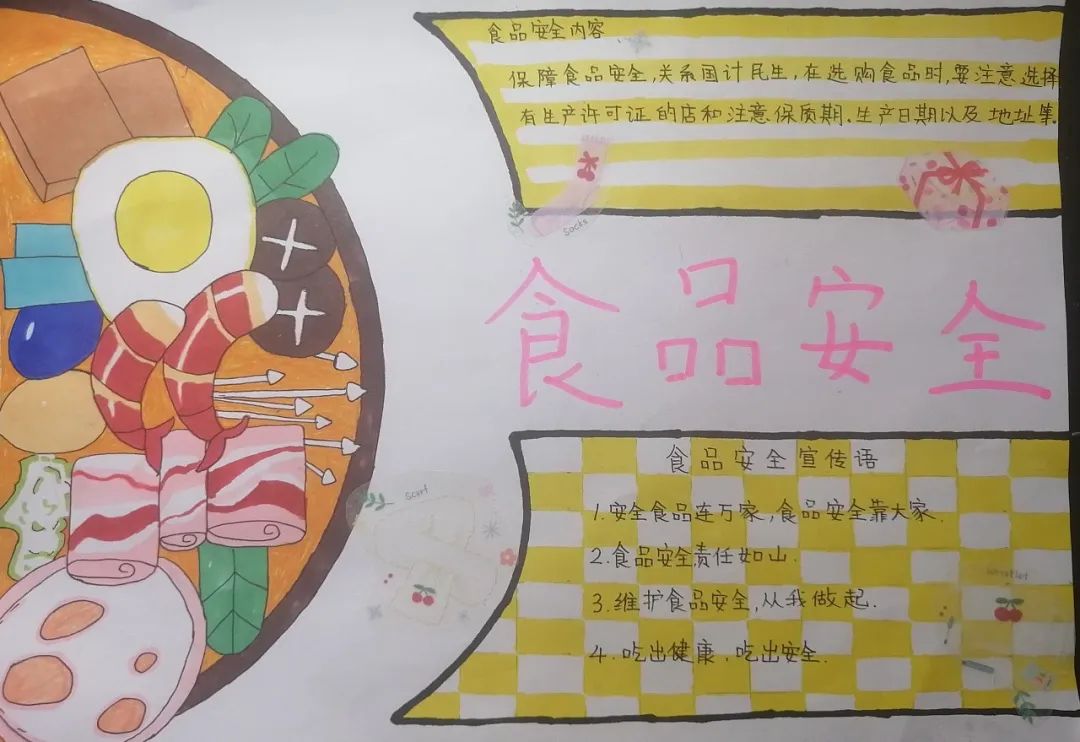 食品安全内容
保障食品安全,关系国计民生,在选购食品时,要注意选择
有生产许可证的店和注意保质期.生产日期以及地址等.
socks
食品安全
scarf
食品安全宣传语
1.安全食品连万家,食品安全靠大家.
2.食品安全责任如山.
3.维护食品安全,从我做起.
4.吃出健康,吃出安全.